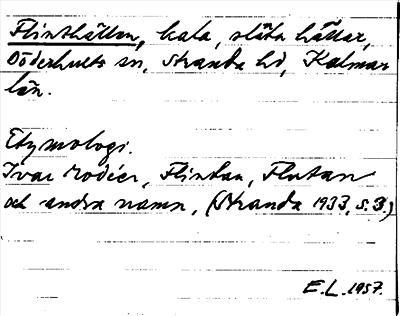 Flinthällan, kala, släta hällar,
Döderhults sn, Stranda hd, Kalmar
län.
Etymologi.
Ivar Modéer, Flintan, Flutan
och andra namn, (Stranda 1933, s. 3.)
E.L. 1957.